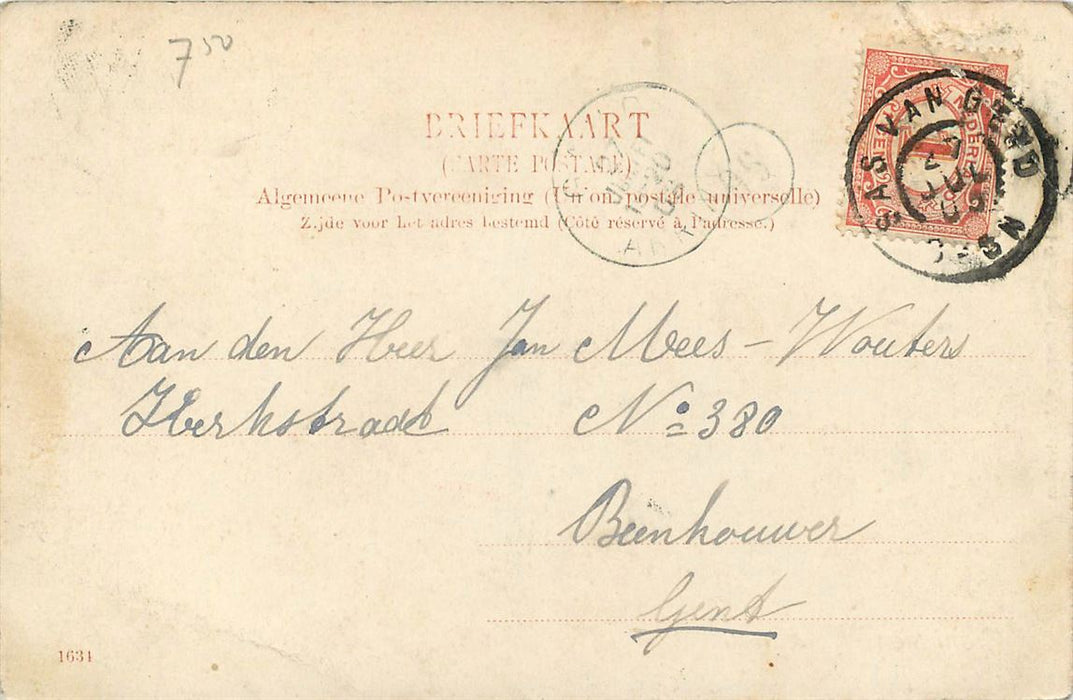 7 50
BRIEFKAART
(CARTE POSTALE)
Algemeene Postvereeniging (Union postale universelle)
Zijde voor het adres bestemd (Côté réservé à l'adresse.)
SAS VAN GEND
1
Aan den Heer Jan Mees-Wouters
Kerkstraat No 380
Beenhouwer
Gent
1634